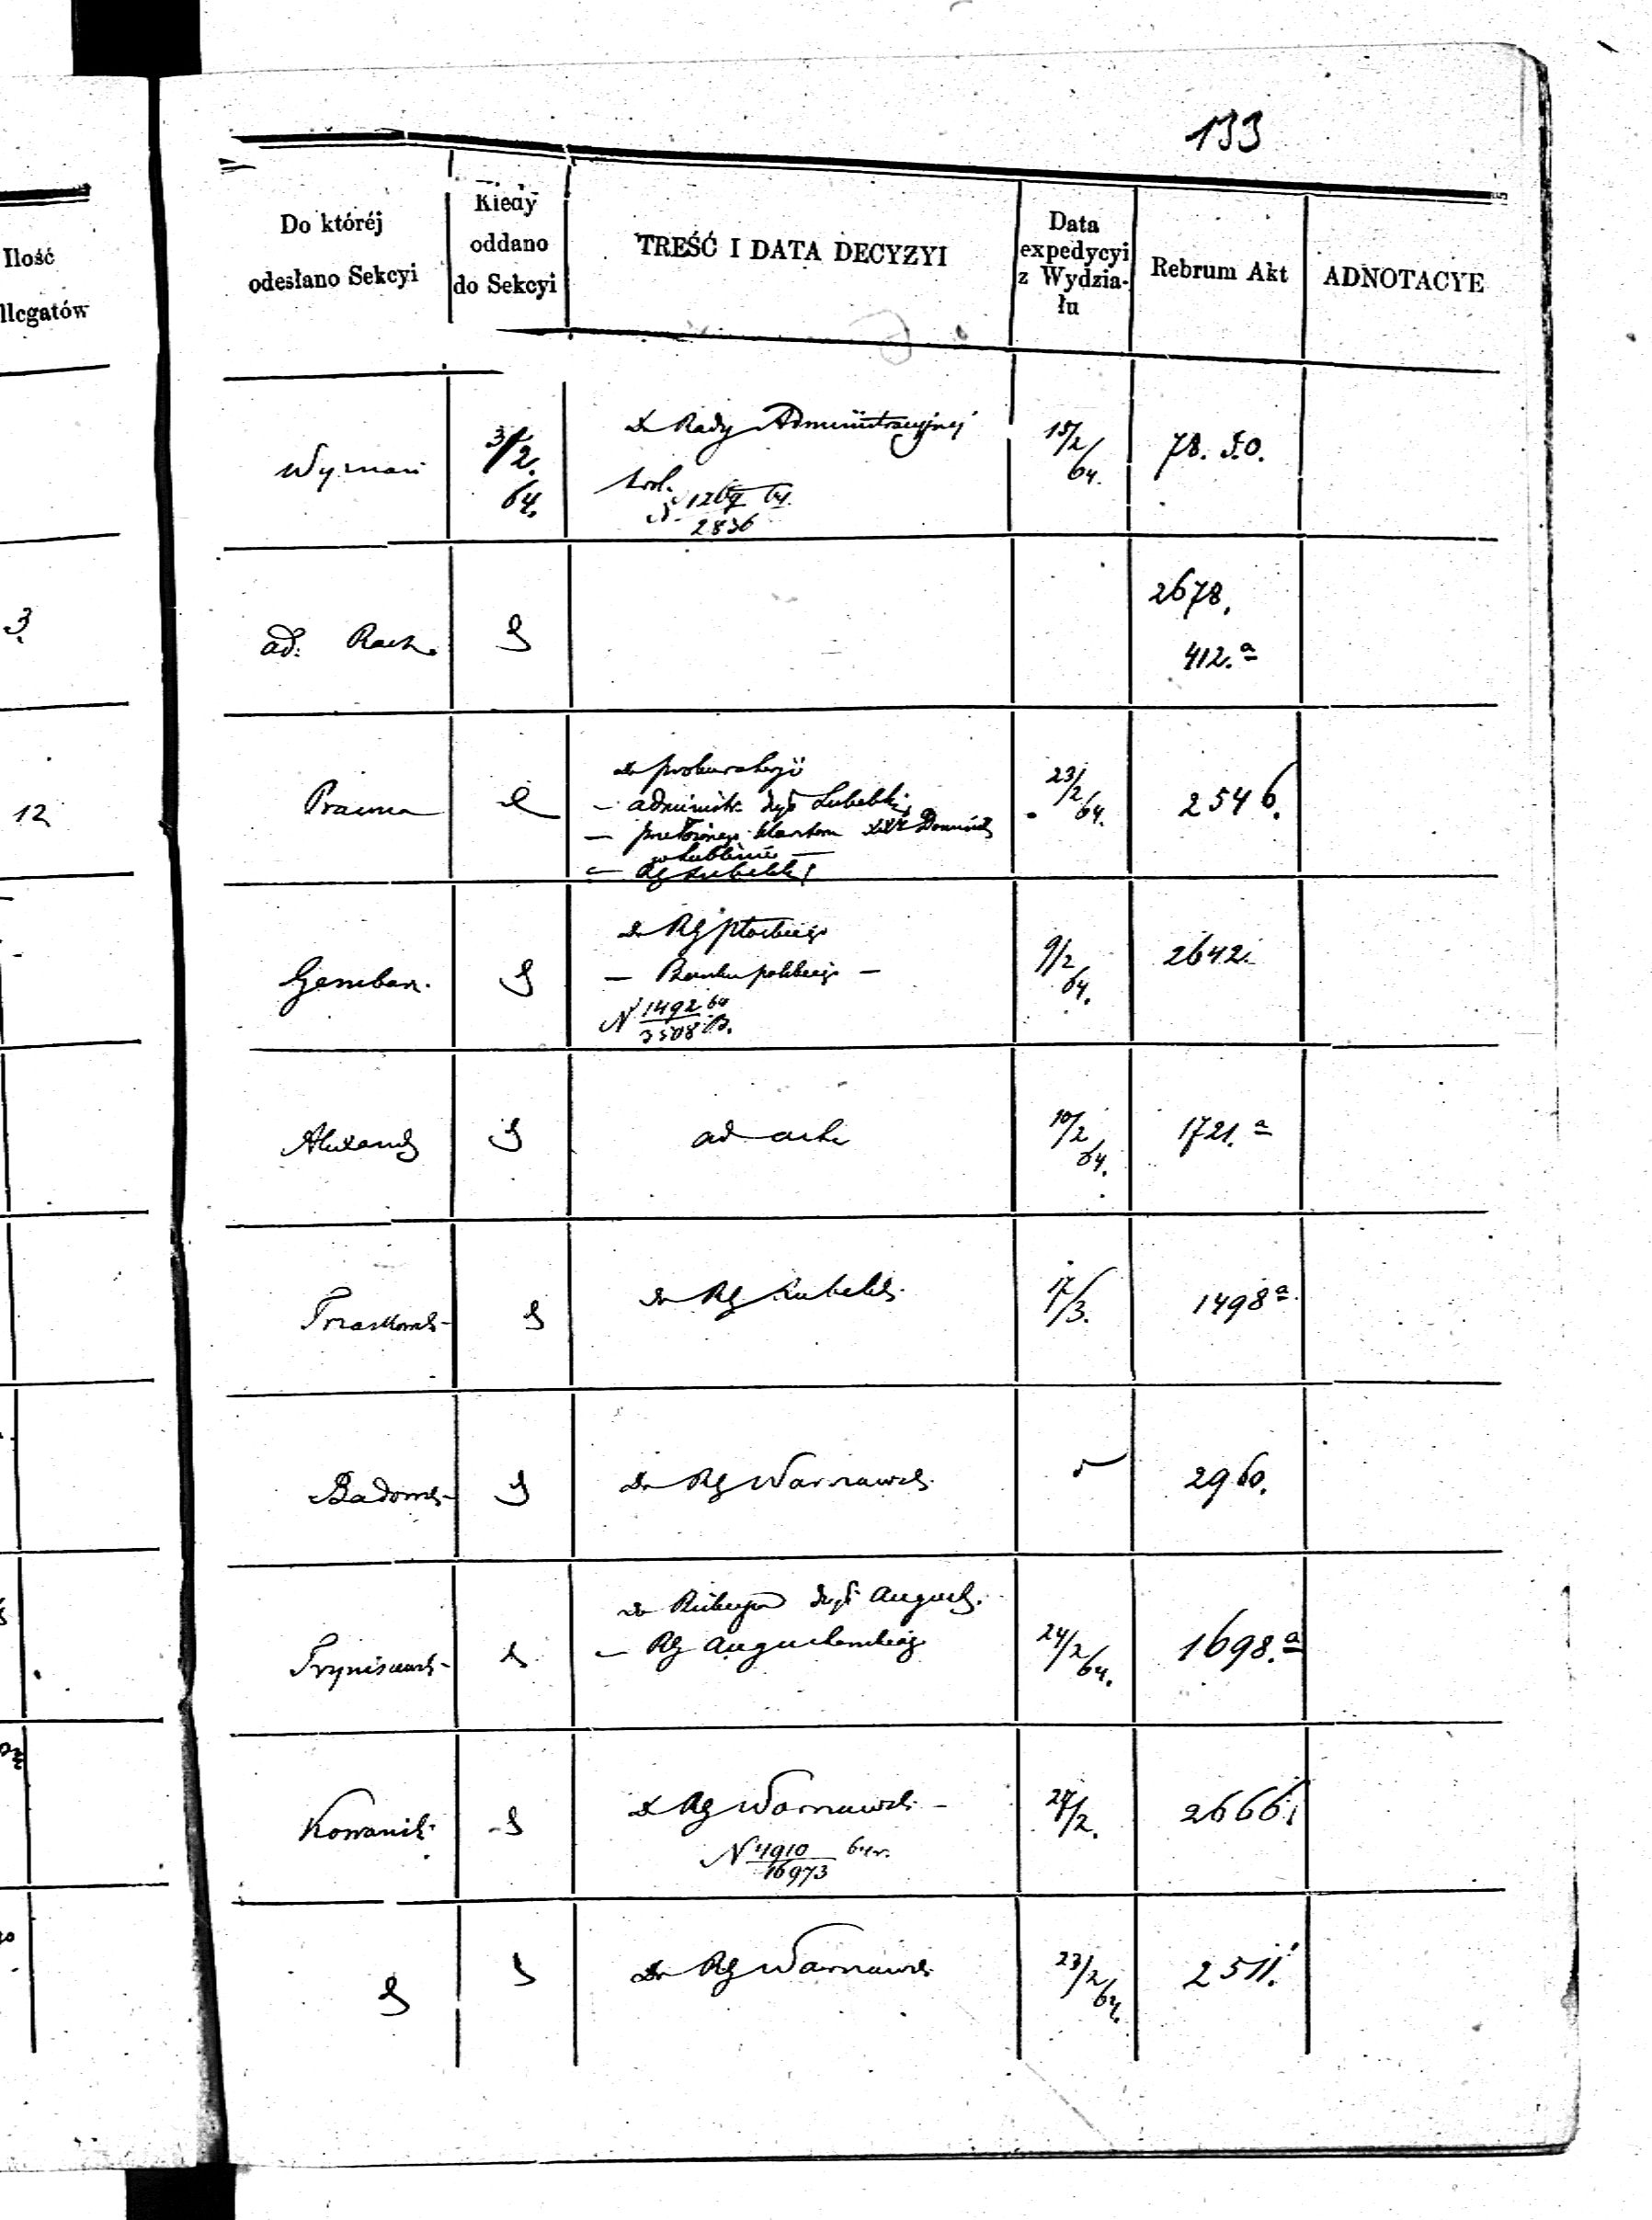 133
Ilość
llegatów
Do któréj
odesłano Sekcyi
Kiedy
oddano
do Sekcyi
TREŚĆ I DATA DECYZYI
Data
expedycyi
z Wydzia-
łu
Rebrum Akt
ADNOTACYE
Wyznań
3/2.
64.
Do Rady Administracyjnej
N 1269 64.
2836
15/2
64.
78. S.O.
3.
ad. Rach.
2678.
412.a
12
Prawna
do prokuratoryi
— administr. dyec Lubelski
— przełożonego klasztoru XX Dominik
w Lublinie —
— RG Lubelski
23/2
64.
2546.
Gemban.
do RG Płockiego
— Banku polskiego —
N 1492 64
3508 B.
9/2
64.
2642.
Alexand
ad acta
10/2
64.
1721.a
Traskows-
do RG Lubels.
17/3.
1498a.
Badows-
Do RG Warszaws.
2960.
do dyec August.
— RG Augustowskiego
24/2
64.
1698.a
Kowanik.
Do RG Warszaws. —
N 4910 64r.
16973
24/2.
2666.
Do RG Warszaws.
23/2
64.
2511.